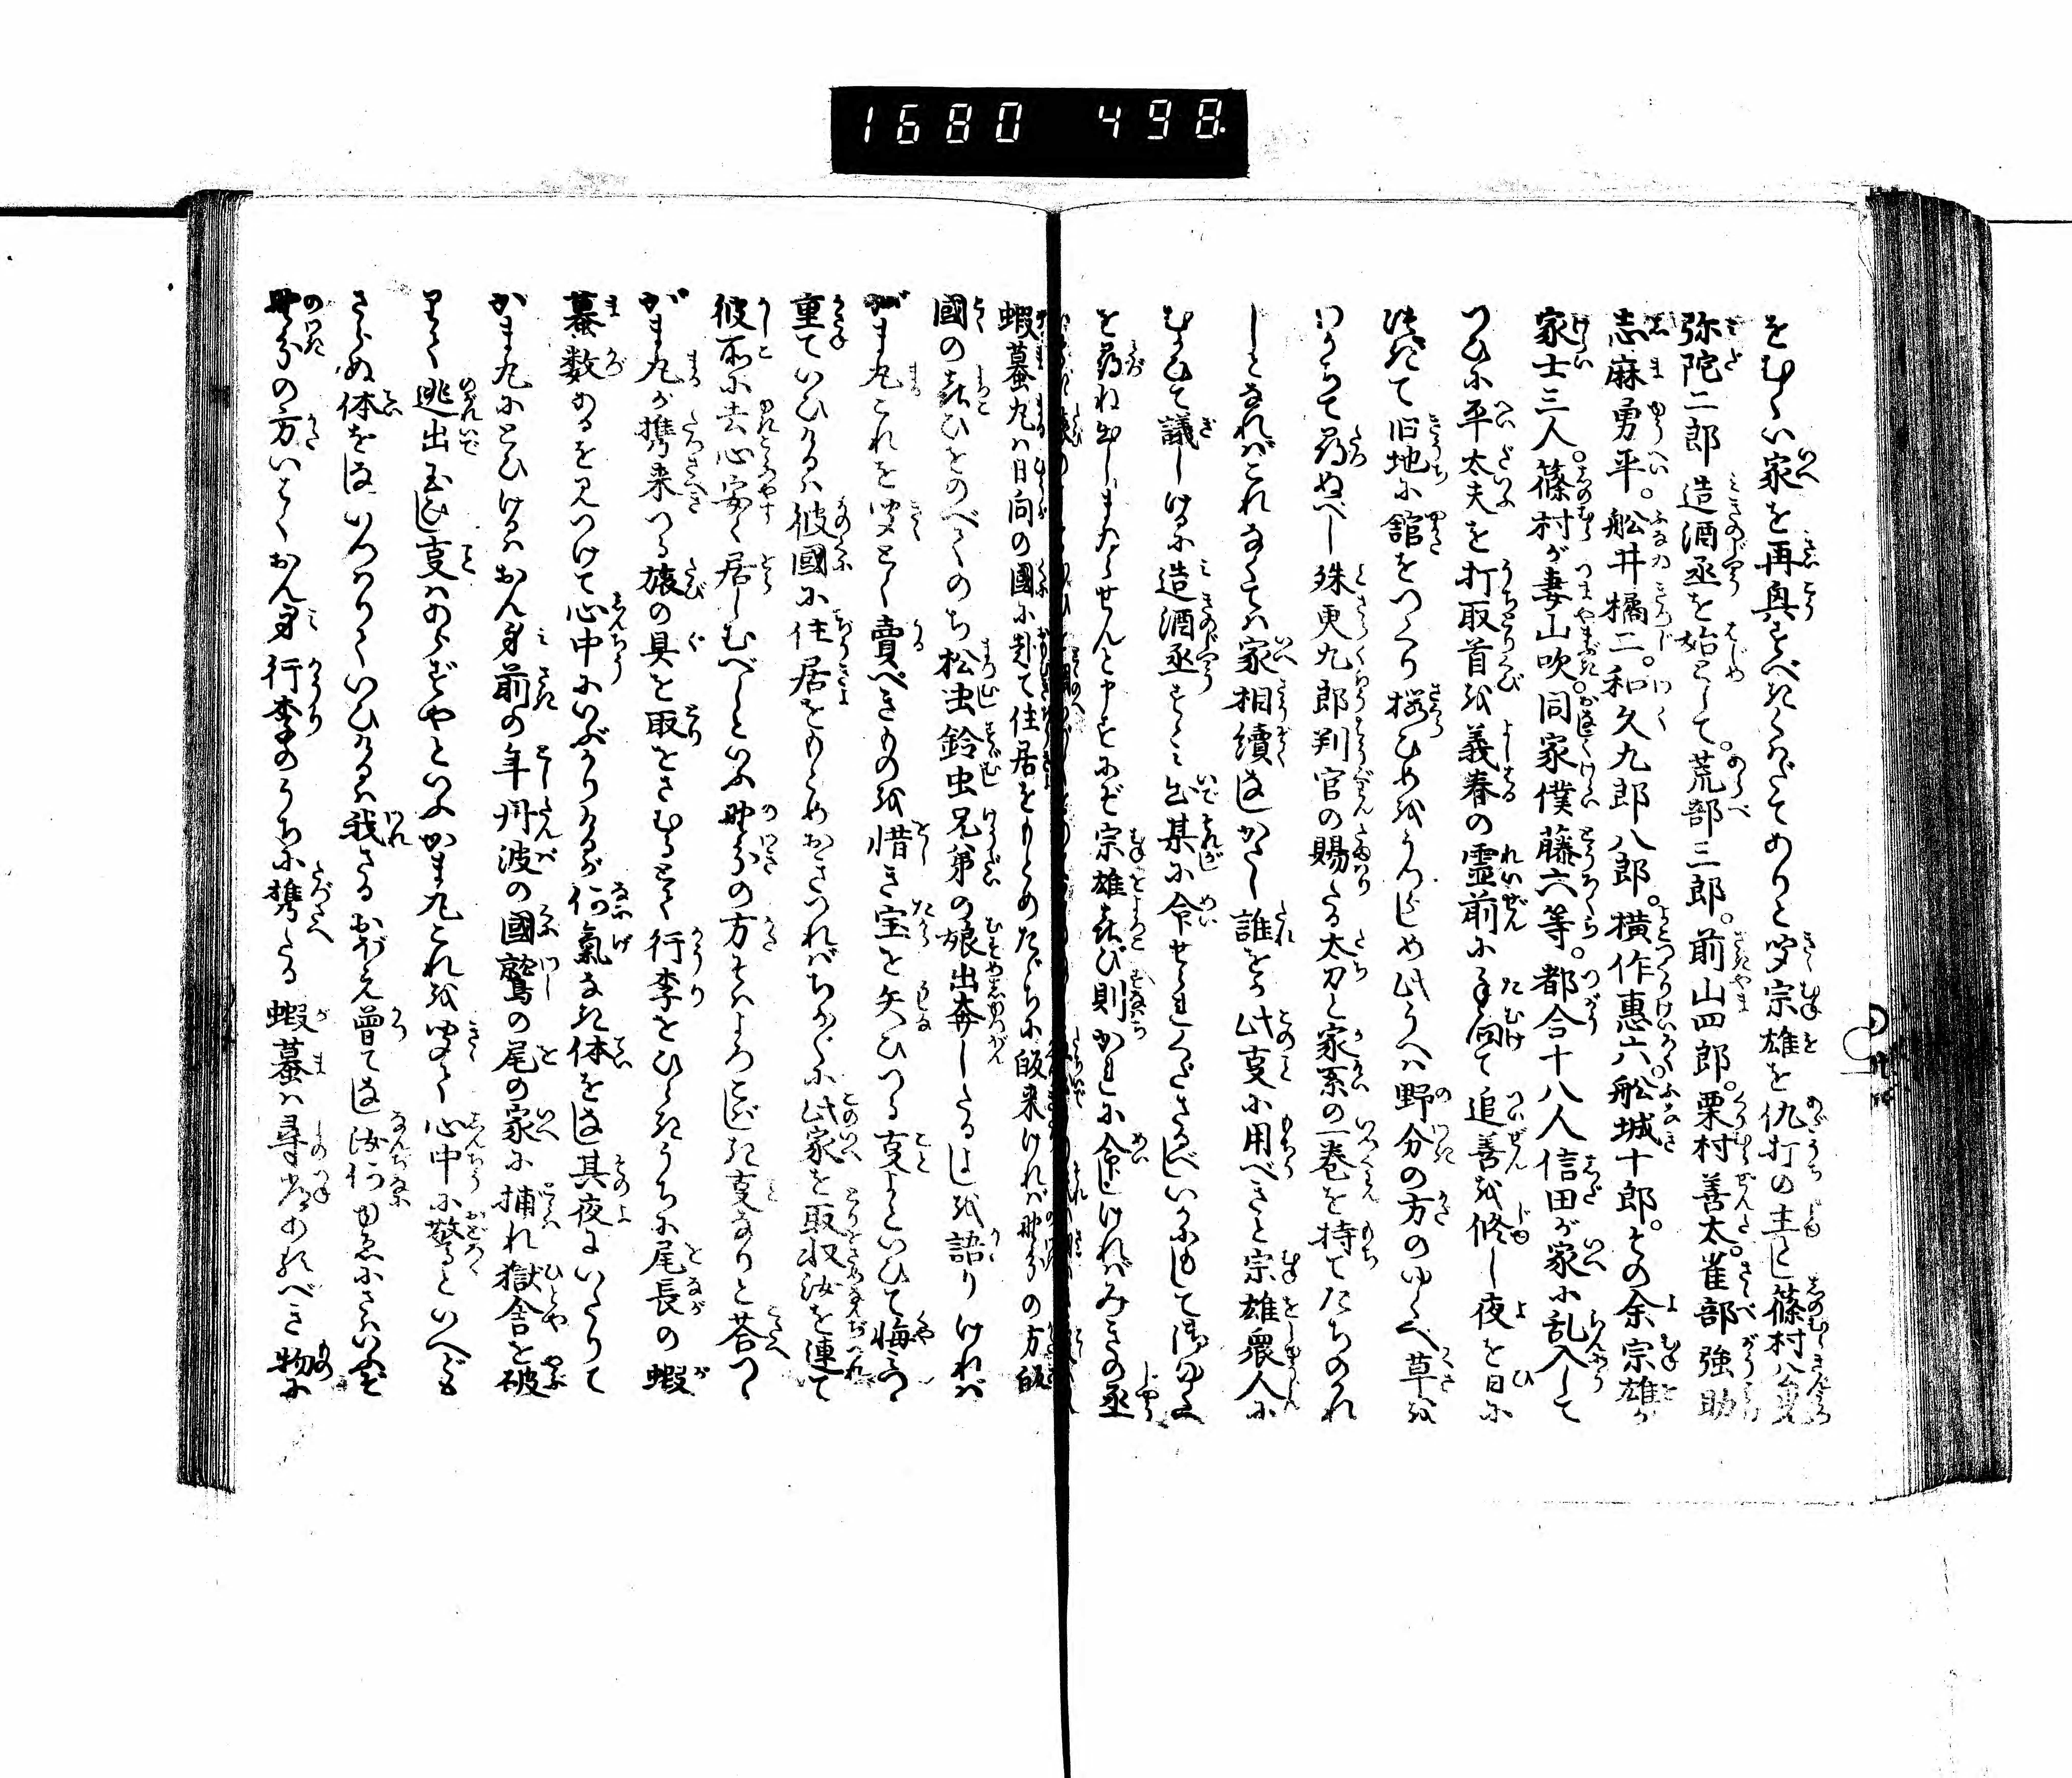 1680 498
をむかい家を再興すべきくわだてありと聞宗雄を仇打の主とし篠村八郎
弥陀二郎造酒丞を始として。荒部三郎。前山四郎。栗村善太。雀部強助
志麻勇平。舩井橘二。和久九郎八郎。横作惠六。舩城十郎。その余宗雄が
家士三人。篠村が妻山吹。同家僕藤六等。都合十八人信田が家に乱入して
つひに平太夫を打取首を義春の霊前に手向て追善を修し夜を日に
旧地に舘をつくり桜ひめをうつしめ此うへは野分の方のゆくへ草を
わかちて尋ぬべし殊更九郎判官の賜たる太刀と家系の一巻を持てたちのれ
しとなればこれなくては家相續なしがたし誰をか此事に用べきと宗雄衆人に
むかひて議しけるに造酒丞すゝみ出某に命せられくださるべしいかにもして御ゆくへ
を尋ね出しまゐらせんと申すにぞ宗雄喜び則かれに命じければみきの丞
蝦蟇丸は日向の國に赴て住居をもとめたゞちに皈来ければ野分の方皈
國の喜ひをのべてのち松虫鈴虫兄弟の娘出奔したるよしを語りければ
がま丸これを聞とく賣べきものを惜き宝を失ひつる事よといひて悔つゝ
重ていひけるは彼國に住居をもとめおきつればちかぐに此家を取収汝を連て
彼所に去心安く居しむべしといふ野分の方そはよろこばしき事なりと荅つゝ
がま丸が携来つる旅の具を取をさむるとて行李をひらきうちに尾長の蝦
蟇数あるを見つけて心中にいぶかりけるが何氣なき体をなし其夜にいたりて
がま丸にとひけるはおん身前の年丹波の國鷲の尾の家に捕れ獄舎を破
りて逃出玉し事はあらずやといふがま丸これを聞て心中に驚といへども
さらぬ体をなしいつはりていひけるは我さるおぼえ曽てなし汝何ゆゑにさはいふぞ
野分の方いはくおん身行李のうちに携たる蝦蟇は尋常あるべき物に